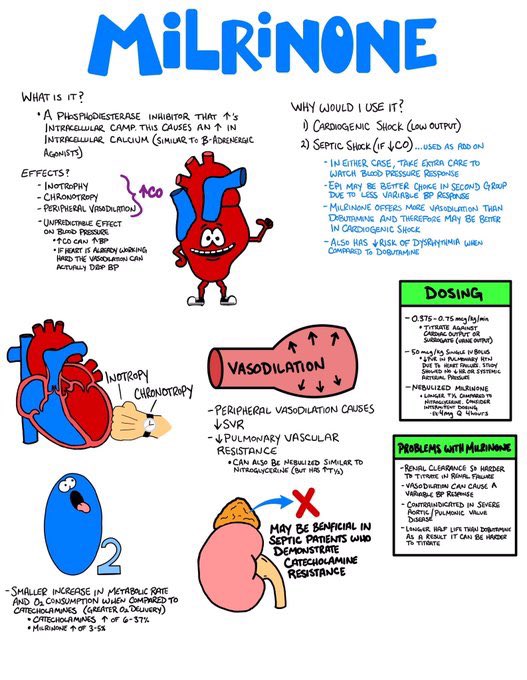 MiLRiNONE
WHAT IS IT?
• A PHOSPHODIESTERASE INHIBITOR THAT ↑'S
INTRACELLULAR CAMP. THIS CAUSES AN ↑ IN
INTRACELLULAR CALCIUM (SIMILAR TO B-ADRENERGIC
AGONISTS)
EFFECTS?
- INOTROPHY
- CHRONOTROPY
- PERIPHERAL VASODILATION
↑CO
- UNPREDICTABLE EFFECT
ON BLOOD PRESSURE
• ↑CO CAN ↑BP
• IF HEART IS ALREADY WORKING
HARD THE VASODILATION CAN
ACTUALLY DROP BP
WHY WOULD I USE IT?
1) CARDIOGENIC SHOCK (LOW OUTPUT)
2) SEPTIC SHOCK (IF ↓CO) ...USED AS ADD ON
- IN EITHER CASE, TAKE EXTRA CARE TO
WATCH BLOOD PRESSURE RESPONSE
- EPI MAY BE BETTER CHOICE IN SECOND GROUP
DUE TO LESS VARIABLE BP RESPONSE
- MILRINONE OFFERS MORE VASODILATION THAN
DOBUTAMINE AND THEREFORE MAY BE BETTER
IN CARDIOGENIC SHOCK
- ALSO HAS ↓ RISK OF DYSRHYTHMIA WHEN
COMPARED TO DOBUTAMINE
DOSING
- 0.375-0.75 mcg/kg/min
• TITRATE AGAINST
CARDIAC OUTPUT OR
SURROGATE (URINE OUTPUT)
- 50 mcg/kg SINGLE IV BOLUS
• ↓PVR IN PULMONARY HTN
DUE TO HEART FAILURE. STUDY
SHOWED NO ↓ HR OR SYSTEMIC
ARTERIAL PRESSURE
- NEBULIZED MILRINONE
• LONGER T½ COMPARED TO
NITROGLYCERINE. CONSIDER
INTERMITTENT DOSING
4mg Q 4HOURS
INOTROPY
CHRONOTROPY
VASODILATION
- PERIPHERAL VASODILATION CAUSES
↓SVR
- ↓PULMONARY VASCULAR
RESISTANCE
• CAN ALSO BE NEBULIZED SIMILAR TO
NITROGLYCERINE (BUT HAS ↑T½)
PROBLEMS WITH MILRINONE
- RENAL CLEARANCE SO HARDER
TO TITRATE IN RENAL FAILURE
- VASODILATION CAN CAUSE A
VARIABLE BP RESPONSE
- CONTRAINDICATED IN SEVERE
AORTIC/PULMONIC VALVE
DISEASE
- LONGER HALF LIFE THAN DOBUTAMINE
AS A RESULT IT CAN BE HARDER
TO TITRATE
O2
- SMALLER INCREASE IN METABOLIC RATE
AND O2 CONSUMPTION WHEN COMPARED TO
CATECHOLAMINES (GREATER O2 DELIVERY)
• CATECHOLAMINES ↑ OF 6-37%
• MILRINONE ↑ OF 3-5%
MAY BE BENIFICIAL IN
SEPTIC PATIENTS WHO
DEMONSTRATE
CATECHOLAMINE
RESISTANCE